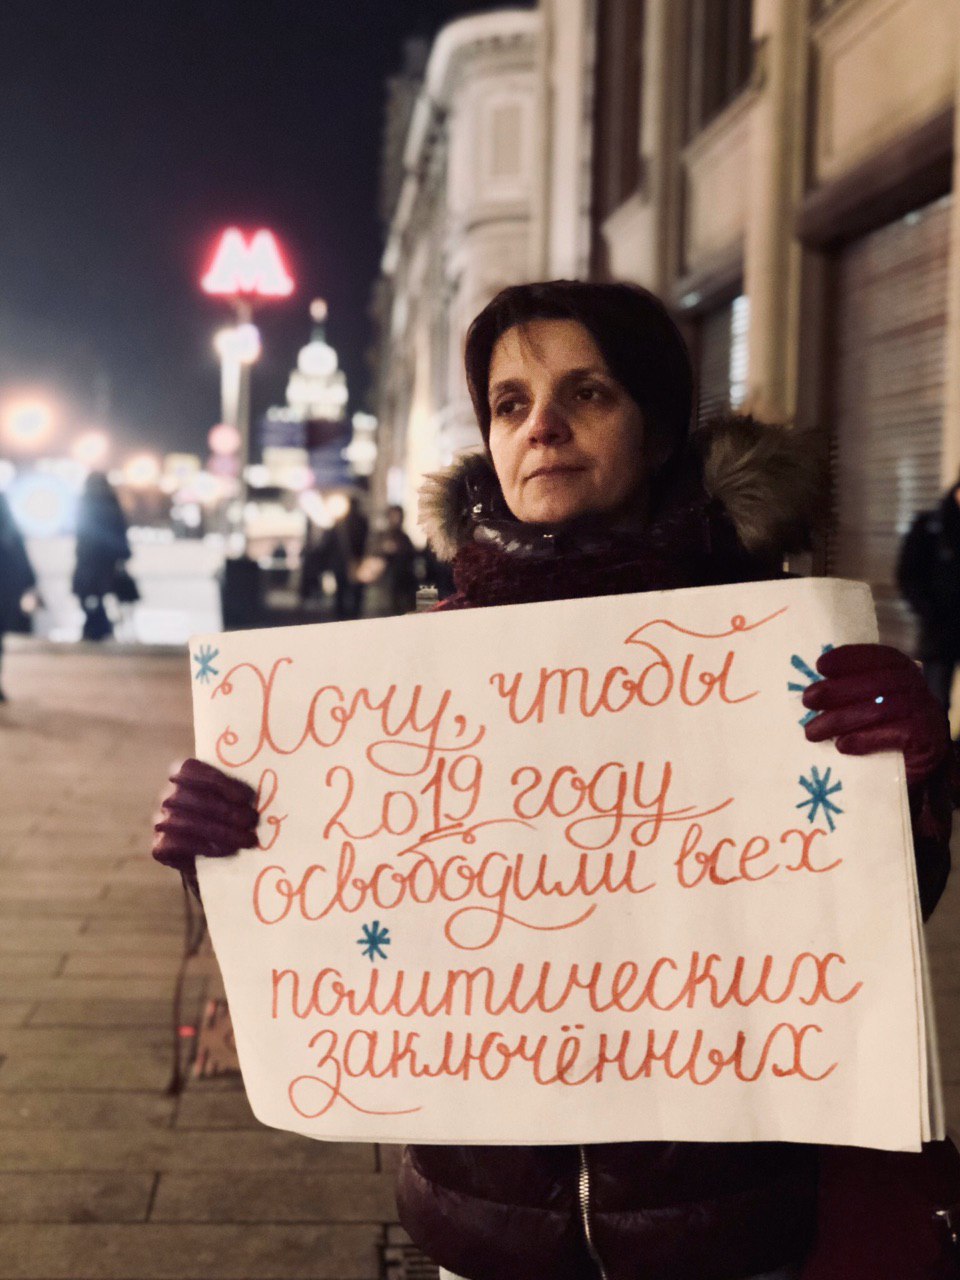 М
Хочу, чтобы
в 2019 году
освободили всех
политических
заключённых